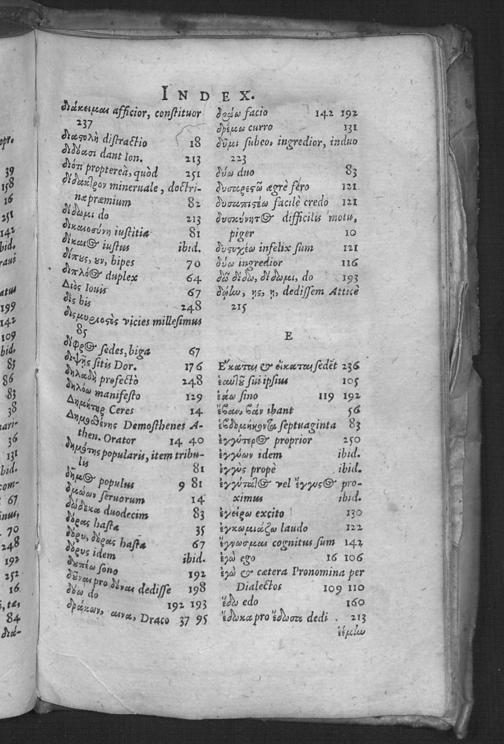 INDEX.
διάκειμαι afficior, constituor
237
διαστολὴ distractio 18
διδόασι dant Ion. 213
διότι propterea, quòd 251
δίδακτρον mineruale, doctri-
næ præmium 82
δίδωμι do 213
δικαιοσύνη iustitia 81
δίκαιος iustus ibid.
δίπους, ουν, bipes 70
διπλόος duplex 64
Διὸς Iouis 67
δὶς bis 248
δισμυριοστὸς vicies millesimus
85
δίφρος sedes, biga 67
δίψης sitis Dor. 176
δηλαδὴ profectò 248
δηλόω manifesto 129
Δημήτηρ Ceres 14
Δημοσθένης Demosthenes A-
then. Orator 14 40
δημότης popularis, item tribu-
lis 81
δῆμος populus 9 81
δμώων seruorum 14
δώδεκα duodecim 83
δόρας hasta 35
δόρυ, δόρας hasta 67
δόρυς idem ibid.
δουπέω sono 192
δοῦναι pro δόναι dedisse 198
δόω do 192 193
δράκων, αινα, Draco 37 95
δράω facio 142 192
δρέμω curro 131
δῦμι subeo, ingredior, induo
223
δύω duo 83
δυσαρεστῶ ægrè fero 121
δυσαπιστέω facilè credo 121
δυσκίνητος difficilis motu,
piger 10
δυστυχέω infelix sum 121
δύω ingredior 116
δῶ διδῶ, δίδωμι, do 193
δῴην, ης, η, dedissem Atticè
215
E
Ἕκαται & οἵκαται sedēt 236
ἑαυτοῦ sui ipsius 105
ἐάω sino 119 192
ἔβαν, βάν ibant 56
ἑβδομήκοντα septuaginta 83
ἐγγύτερος proprior 250
ἐγγίων idem ibid.
ἐγγὺς propè ibid.
ἐγγύτατος vel ἔγγιστος pro-
ximus ibid.
ἐγείρω excito 130
ἐγκωμιάζω laudo 122
ἔγνωσμαι cognitus sum 142
ἐγὼ ego 16 106
ἐγὼ & cætera Pronomina per
Dialectos 109 110
ἔδω edo 160
ἔδωκα pro ἔδωσα dedi. 213
39
158
16
251
142
bid.
199
142
109
bid.
83
86
83
38
36
131
bid.
67
70
248
192
252
16
84